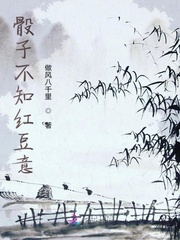 骰子不知红豆意
做风八千里 ◎ 著